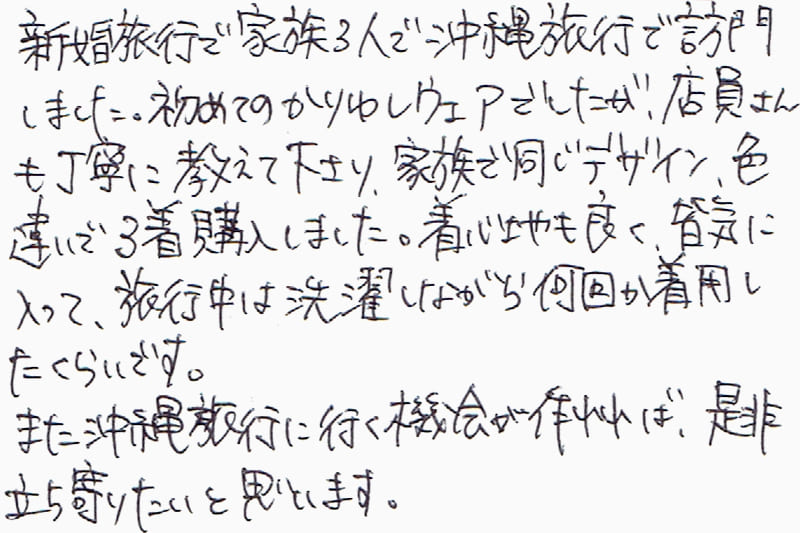 新婚旅行で家族3人で沖縄旅行で訪門
しました。初めてのかりゆしウェアでしたが、店員さん
も丁寧に教えて下さり、家族で同じデザイン、色
違いで3着購入しました。着心地も良く、皆気に
入って、旅行中は洗濯しながら何回か着用し
たくらいです。
また沖縄旅行に行く機会が作れれば、是非
立ち寄りたいと思います。